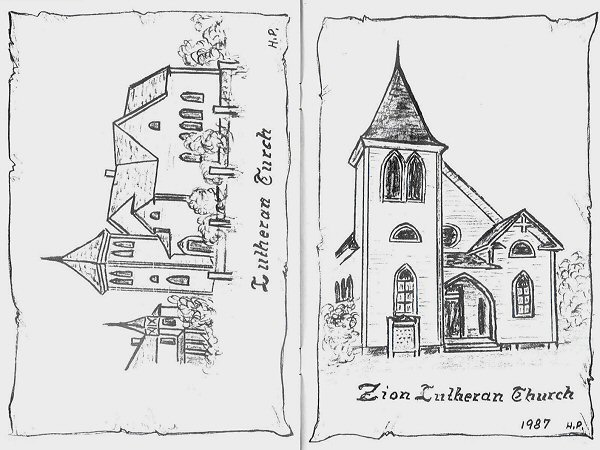 H.P.
Lutheran Curch
Zion Lutheran Church
1987 H.P.